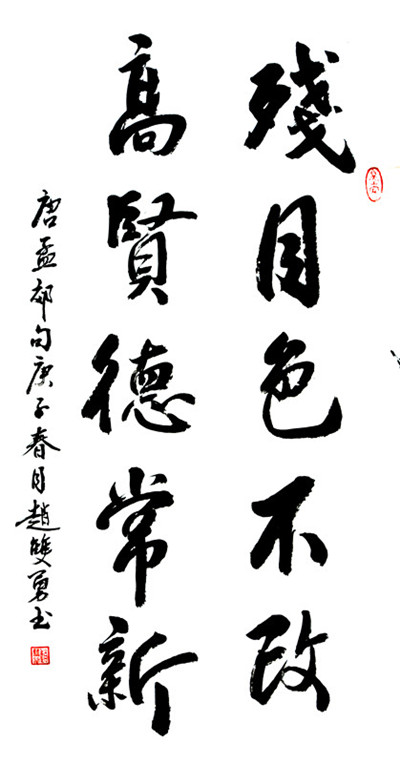 殘月色不改
高賢德常新
唐孟郊句庚子春月趙雙勇书